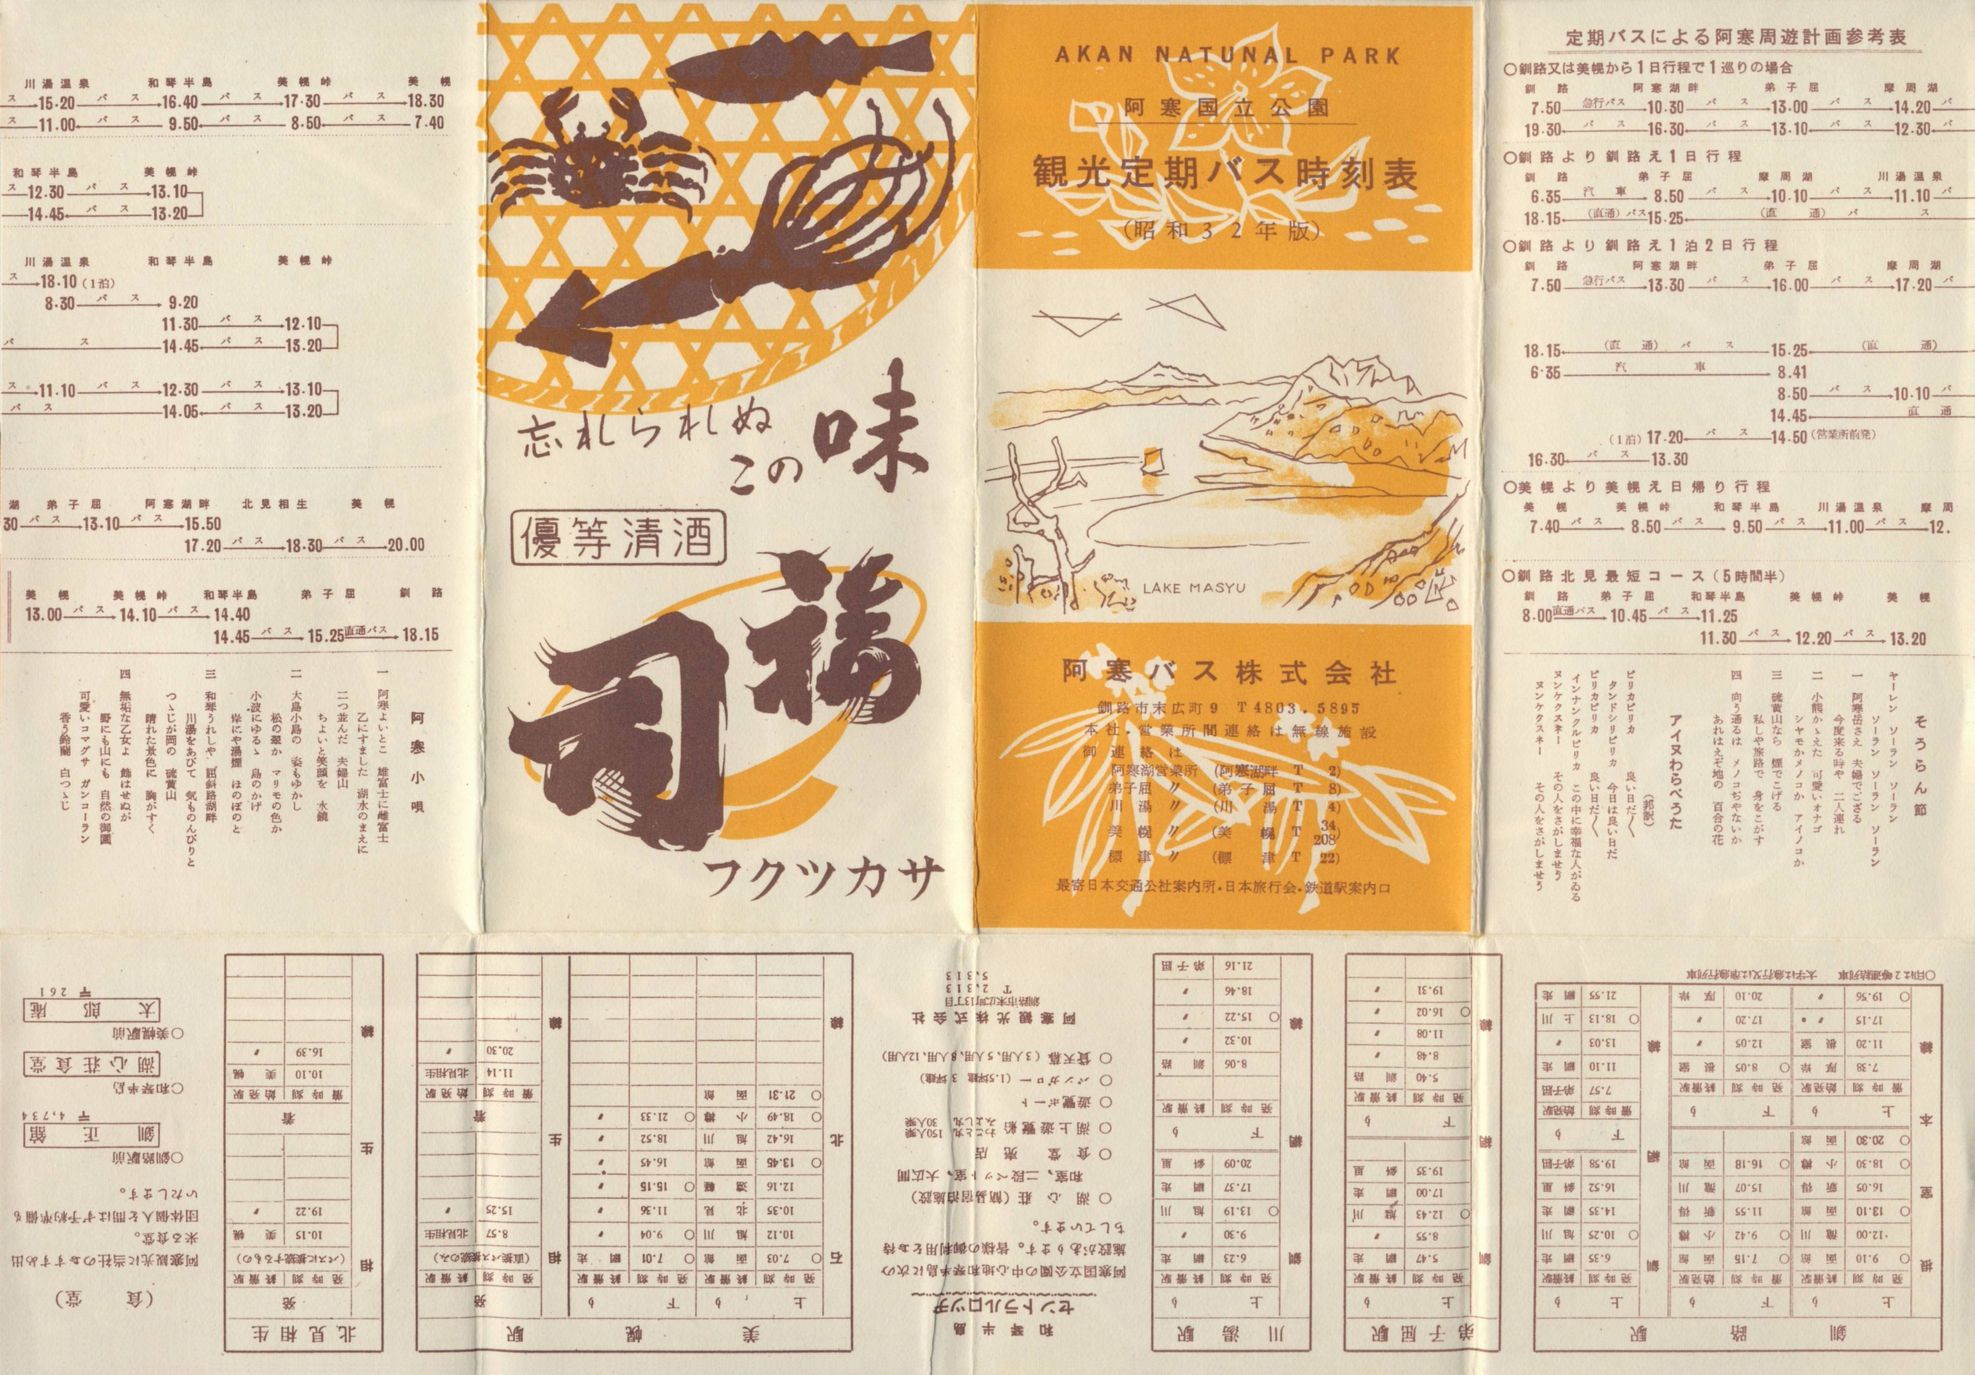 AKAN NATUNAL PARK
阿寒国立公園
観光定期バス時刻表
(昭和32年版)
LAKE MASYU
阿寒バス株式会社
釧路市末広町9 T4803.5895
本社.営業所間連絡は無線施設
御連絡は
阿寒湖営業所 (阿寒湖畔 T 2)
弟子屈 〃 (弟子屈 T 8)
川湯 〃 (川湯 T 4)
美幌 〃 (美幌 T 34 208)
標津 〃 (標津 T 22)
最寄日本交通公社案内所.日本旅行会.鉄道駅案内口
忘れられぬ
この味
優等清酒
福司
フクツカサ
定期バスによる阿寒周遊計画参考表
○釧路又は美幌から1日行程で1巡りの場合
釧路 阿寒湖畔 弟子屈 摩周湖
7.50 急行バス 10.30 バス 13.00 バス 14.20 バ
19.30 バス 16.30 バス 13.10 バス 12.30 バ
○釧路より釧路え1日行程
釧路 弟子屈 摩周湖 川湯温泉
6.35 汽車 8.50 バス 10.10 バス 11.10
18.15 (直通)バス 15.25 (直通) バス
○釧路より釧路え1泊2日行程
釧路 阿寒湖畔 弟子屈 摩周湖
7.50 急行バス 13.30 バス 16.00 バス 17.20 バ
18.15 (直通) バス 15.25 (直通)
6.35 汽車 8.41
8.50 バス 10.10 バ
14.45 直通
(1泊) 17.20 バス 14.50 (営業所前発)
16.30 バス 13.30
○美幌より美幌え日帰り行程
美幌 美幌峠 和琴半島 川湯温泉 摩周
7.40 バス 8.50 バス 9.50 バス 11.00 バス 12.
○釧路北見最短コース(5時間半)
釧路 弟子屈 和琴半島 美幌峠 美幌
8.00 直通バス 10.45 バス 11.25
11.30 バス 12.20 バス 13.20
川湯温泉 和琴半島 美幌峠 美幌
ス 15.20 バス 16.40 バス 17.30 バス 18.30
ス 11.00 バス 9.50 バス 8.50 バス 7.40
和琴半島 美幌峠
ス 12.30 バス 13.10
14.45 バス 13.20
川湯温泉 和琴半島 美幌峠
ス 18.10 (1泊)
8.30 バス 9.20
11.30 バス 12.10
バス 14.45 バス 13.20
ス 11.10 バス 12.30 バス 13.10
バス 14.05 バス 13.20
湖 弟子屈 阿寒湖畔 北見相生 美幌
30 バス 13.10 バス 15.50
17.20 バス 18.30 バス 20.00
美幌 美幌峠 和琴半島 弟子屈 釧路
13.00 バス 14.10 バス 14.40
14.45 バス 15.25 直通バス 18.15
そうらん節
ヤーレン ソーラン ソーラン
ソーラン ソーラン ソーラン
一 阿寒岳さえ 夫婦でござる
今度来る時や 二人連れ
二 小熊かゝえた 可愛いオナゴ
シヤモかメノコか アイノコか
三 硫黄山なら 煙でこげる
私しや旅路で 身をこがす
四 向う通るは メノコぢやないか
あれはえぞ地の 百合の花
アイヌわらべうた
(邦訳)
ピリカピリカ 良い日だ〱
タンドシリピリカ 今日は良い日だ
ピリカピリカ 良い日だ〱
インナンクルピリカ この中に幸福な人がゐる
ヌンケクスネー その人をさがしませう
ヌンケクスネー その人をさがしませう
阿寒小唄
一 阿寒よいとこ 雄富士に雌富士
乙にすました 湖水のまえに
二つ並んだ 夫婦山
ちよいと笑顔を 水鏡
二 大島小島の 姿もゆかし
松の翠か マリモの色か
小波にゆるゝ 島のかげ
岸にや湯煙 ほのぼのと
三 和琴うれしや 屈斜路湖畔
川湯をあびて 気ものんびりと
つゝじが岡の 硫黄山
晴れた景色に 胸がすく
四 無垢な乙女よ 飾はせぬが
野にも山にも 自然の御園
可愛いコマグサ ガンコーラン
香う鈴蘭 白つゝじ
○印は2等連結列車 太字は急行又は準急行列車
釧路駅
根室本線
上り
発時刻 終着駅
○ 9.10 函館
12.00 滝川
○ 13.10 新得
16.05 新得
○ 18.30 小樽
○ 20.30 函館
下り
着時刻 始発駅
○ 7.15 函館
○ 9.42 小樽
11.55 新得
15.07 滝川
○ 16.18 函館
上り
7.38 厚岸
11.20 根室
17.15 〃
○ 19.56 〃
下り
○ 8.05 根室
12.05 〃
17.20 〃
20.10 厚岸
釧網線
上り
発時刻 終着駅
6.35 網走
○ 10.25 旭川
14.35 網走
16.52 斜里
19.58 弟子屈
下り
着時刻 始発駅
7.57 弟子屈
11.10 網走
13.03 〃
○ 18.13 上川
21.55 網走
弟子屈駅
釧網線
上り
発時刻 終着駅
5.47 網走
8.55 〃
○ 12.43 旭川
17.00 網走
19.35 斜里
下り
発時刻 終着駅
5.40 釧路
8.48 〃
11.08 〃
○ 16.02 〃
19.31 〃
川湯駅
釧網線
上り
発時刻 終着駅
6.23 網走
9.30 〃
○ 13.19 旭川
17.37 網走
20.09 斜里
下り
発時刻 終着駅
8.06 釧路
10.32 〃
○ 15.22 〃
18.46 〃
21.16 弟子屈
和琴半島
セントラルロッヂ
阿寒国立公園の中心地和琴半島に次の
施設があります。皆様の御利用をお待
ちしています。
○ 湖心荘(簡易宿泊施設)
和室、二段ベット室、大広間
○ 食堂 売店
○ 湖上遊覧船 わこと丸 150人乗 みよし丸 30人乗
○ 遊覧ボート
○ バンガロー(1.5坪建 3坪建)
○ 貸天幕(3人用、5人用、8人用、12人用)
阿寒観光株式会社
釧路市末広町13丁目
T 2,313
5,313
美幌駅
石北線
上り
発時刻 終着駅
○ 7.03 函館
10.12 旭川
10.35 北見
12.16 遠軽
○ 13.45 函館
16.42 旭川
○ 18.49 小樽
○ 21.31 函館
下り
発時刻 終着駅
○ 7.01 網走
○ 9.04 〃
11.36 〃
○ 15.15 〃
16.45 〃
18.52 〃
○ 21.33 〃
相生線
発
発時刻 終着駅
(直接バス接続のみ)
8.57 北見相生
15.25 〃
着
着時刻 始発駅
11.14 北見相生
20.30 〃
北見相生
相生線
発
発時刻 終着駅
(バスに接続するもの)
10.15 美幌
19.22 〃
着
着時刻 始発駅
10.10 美幌
16.39 〃
(食堂)
阿寒観光に当社のおすすめ出
来る食堂。
団体個人を問はず予約準備も
いたします。
○釧路駅前
釧正館
〒 4,734
○和琴半島
湖心荘食堂
○美幌駅前
太郎庵
〒 261